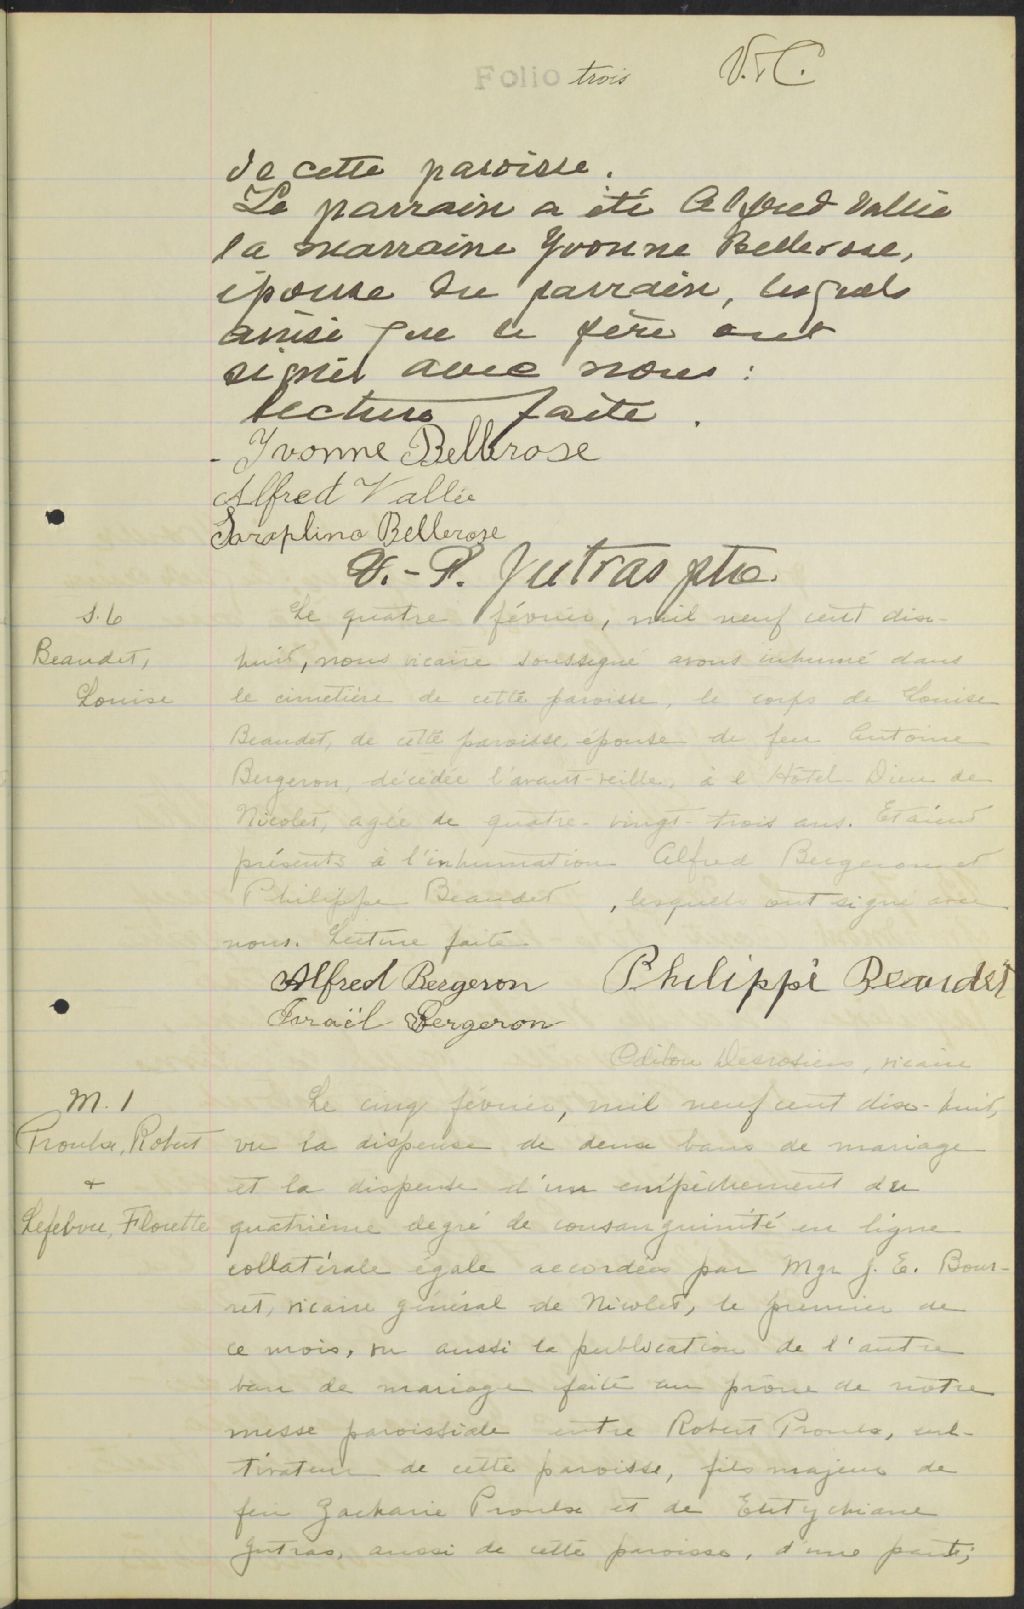 Folio trois
V. & C.
de cette paroisse.
Le parrain a été Alfred Vallée
la marraine Yvonne Bellerose,
épouse du parrain, lesquels
ainsi que le père ont
signés avec nous :
lecture faite.
Yvonne Bellerose
Alfred Vallée
Saraplino Bellerose
V.-P. Jutras ptre.
S. 6
Beaudet,
Louise
Le quatre février, mil neuf cent dix-
huit, nous vicaire soussigné avons inhumé dans
le cimetière de cette paroisse, le corps de Louise
Beaudet, de cette paroisse, épouse de feu Antoine
Bergeron, décédée l'avant-veille, à l'Hôtel-Dieu de
Nicolet, agée de quatre-vingt-trois ans. Etaient
présents à l'inhumation Alfred Bergeron et
Philippe Beaudet, lesquels ont signé avec
nous. Lecture faite
Alfred Bergeron Philippe Beaudet
Israël Bergeron
Odilon Desrosiers, vicaire
M. 1
Proulx, Robert
+
Lefebvre, Florette
Le cinq février, mil neuf cent dix-huit,
vu la dispense de deux bans de mariage
et la dispense d'un empêchement du
quatrième degré de consanguinité en ligne
collatérale égale accordées par Mgr J. E. Bour-
ret, vicaire général de Nicolet, le premier de
ce mois, vu aussi la publication de l'autre
ban de mariage faite au prône de notre
messe paroissiale entre Robert Proulx, cul-
tivateur de cette paroisse, fils majeur de
feu Zacharie Proulx et de Eutychiane
Jutras, aussi de cette paroisse, d'une part;